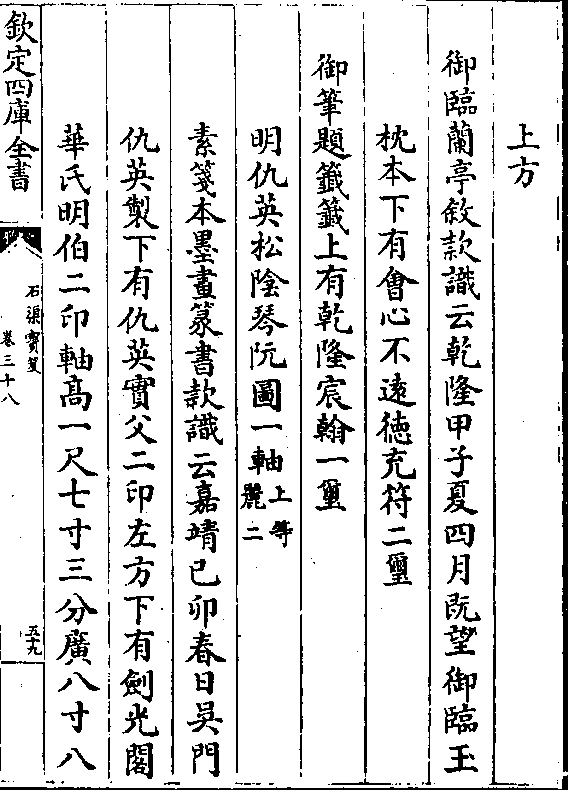 上方
御臨蘭亭敘款識云乾隆甲子夏四月既望御臨玉
枕本下有會心不遠徳充符二璽
御筆題籤籤上有乾隆宸翰一璽
明仇英松陰琴阮圖一軸上等麗二
素箋本墨畫篆書款識云嘉靖己卯春日吳門
仇英製下有仇英實父二印左方下有劍光閣
華氏明伯二印軸髙一尺七寸三分廣八寸八
欽定四庫全書
石渠寶笈
卷三十八
五十九